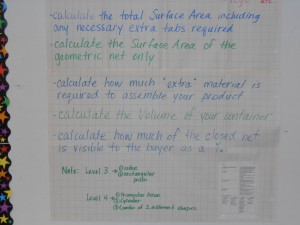 -calculate the total Surface Area including
any necessary extra tabs required
-calculate the Surface Area of the
geometric net only
-calculate how much "extra" material is
required to assemble your product
-calculate the Volume of your container
-calculate how much of the closed net
is visible to the buyer as a %.
Note: Level 3 → ① cube
② rectangular
prism
Level 4 → ① triangular
② Cylinder
③ Combo of 2 different shapes